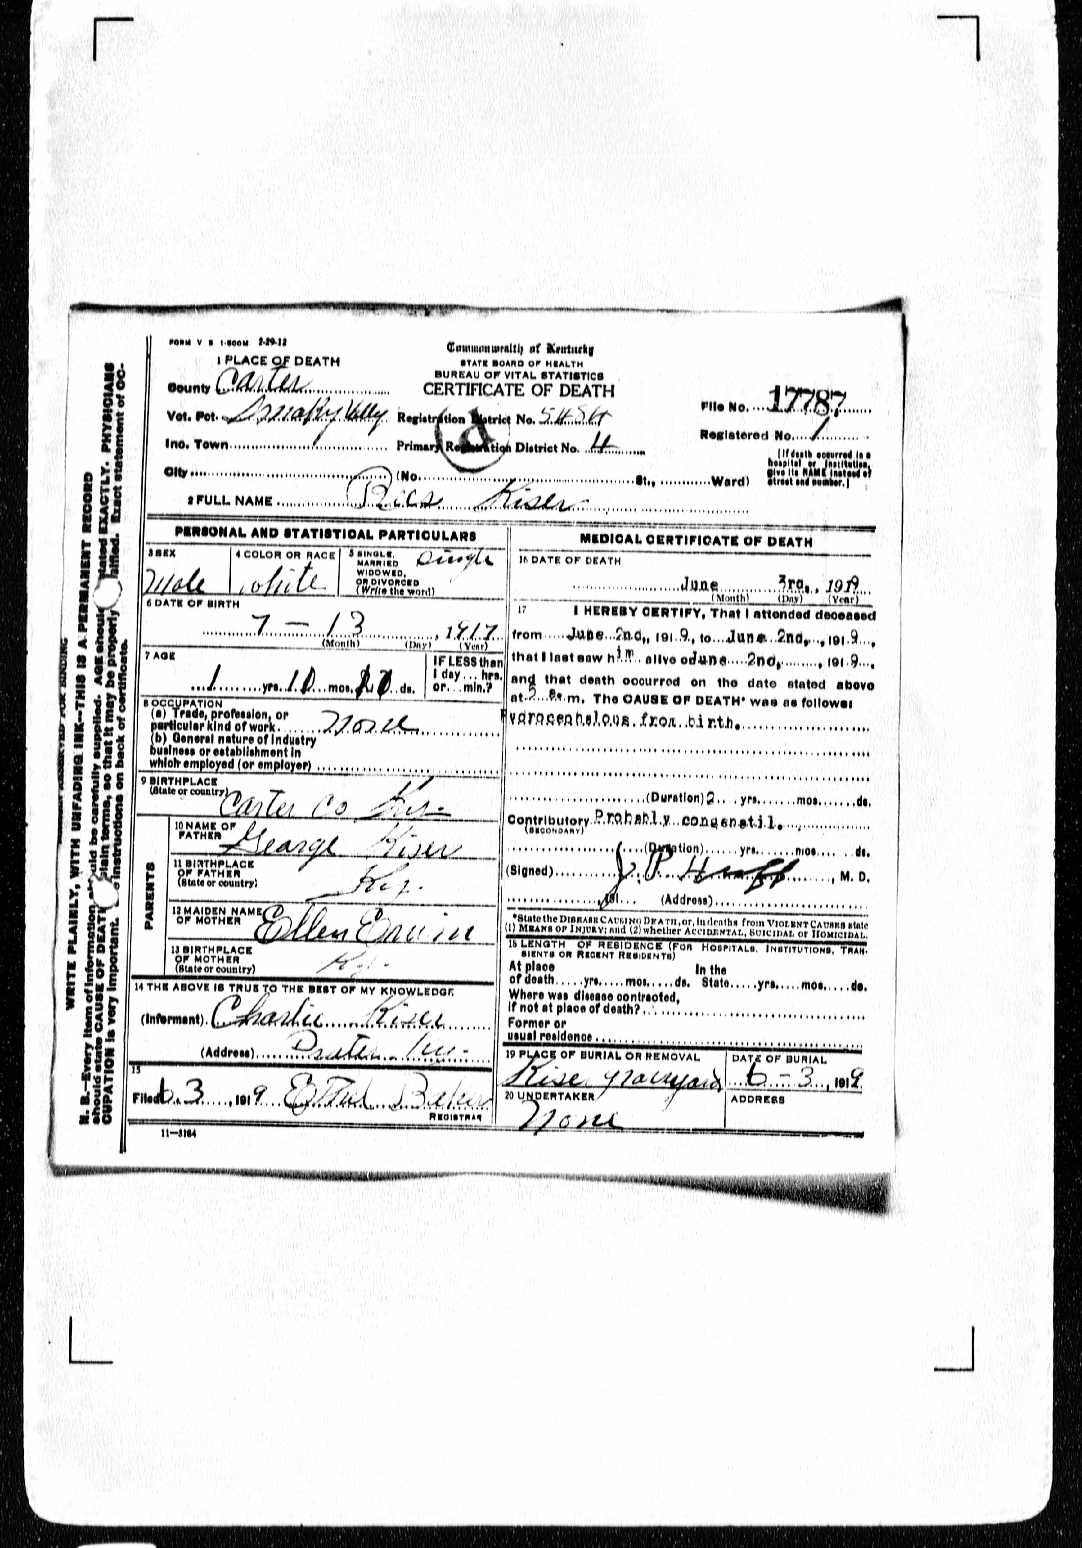 FORM V S 1-500M 2-29-12
Commonwealth of Kentucky
STATE BOARD OF HEALTH
BUREAU OF VITAL STATISTICS
CERTIFICATE OF DEATH
1 PLACE OF DEATH
County Carter
Vot. Pct. Smoky Valley Registration District No. 5484
File No. 17787
Inc. Town Primary Registration District No. 4
Registered No. 1
City (No. St., Ward)
(If death occurred in a
hospital or institution,
give its NAME instead of
street and number.)
2 FULL NAME Rees Kiser
PERSONAL AND STATISTICAL PARTICULARS
3 SEX
Male
4 COLOR OR RACE
white
5 SINGLE,
MARRIED
WIDOWED,
OR DIVORCED
(Write the word)
Single
6 DATE OF BIRTH
7 - 13, 1917
(Month) (Day) (Year)
7 AGE
1 yrs. 10 mos. ds.
IF LESS than
1 day ... hrs.
or ... min.?
8 OCCUPATION
(a) Trade, profession, or
particular kind of work None
(b) General nature of industry
business or establishment in
which employed (or employer)
9 BIRTHPLACE
(State or country) Carter Co Ky.
PARENTS
10 NAME OF
FATHER George Kiser
11 BIRTHPLACE
OF FATHER
(State or country) Ky.
12 MAIDEN NAME
OF MOTHER Ellen Erwin
13 BIRTHPLACE
OF MOTHER
(State or country) Ky.
14 THE ABOVE IS TRUE TO THE BEST OF MY KNOWLEDGE
(Informant) Charlie Kiser
(Address)
15
Filed 6 3, 1919 Baker
REGISTRAR
11—3184
MEDICAL CERTIFICATE OF DEATH
16 DATE OF DEATH
June 3rd., 1919
(Month) (Day) (Year)
17 I HEREBY CERTIFY, That I attended deceased
from June 2nd,, 191 9, to June 2nd,, 191 9,
that I last saw him alive o June 2nd,, 191 9,
and that death occurred on the date stated above
at 5 a. m. The CAUSE OF DEATH* was as follows:
Hydrocephalous from birth.
(Duration) 2 yrs. mos. ds.
Contributory Probably congenatil.
(SECONDARY)
(Duration) yrs. mos. ds.
(Signed) J. P. Huff, M. D.
191 (Address)
*State the DISEASE CAUSING DEATH, or, in deaths from VIOLENT CAUSES state
(1) MEANS OF INJURY; and (2) whether ACCIDENTAL, SUICIDAL or HOMICIDAL.
18 LENGTH OF RESIDENCE (FOR HOSPITALS, INSTITUTIONS, TRAN-
SIENTS OR RECENT RESIDENTS)
At place In the
of death yrs. mos. ds. State yrs. mos. ds.
Where was disease contracted,
if not at place of death?
Former or
usual residence
19 PLACE OF BURIAL OR REMOVAL
Kise graveyard
DATE OF BURIAL
6 - 3, 1919
20 UNDERTAKER
None
ADDRESS
WRITE PLAINLY, WITH UNFADING INK—THIS IS A PERMANENT RECORD
N. B.—Every item of information should be carefully supplied. AGE should stated EXACTLY. PHYSICIANS
should state CAUSE OF DEATH plain terms, so that it may be properly classified. Exact statement of OC-
CUPATION is very important. instructions on back of certificate.